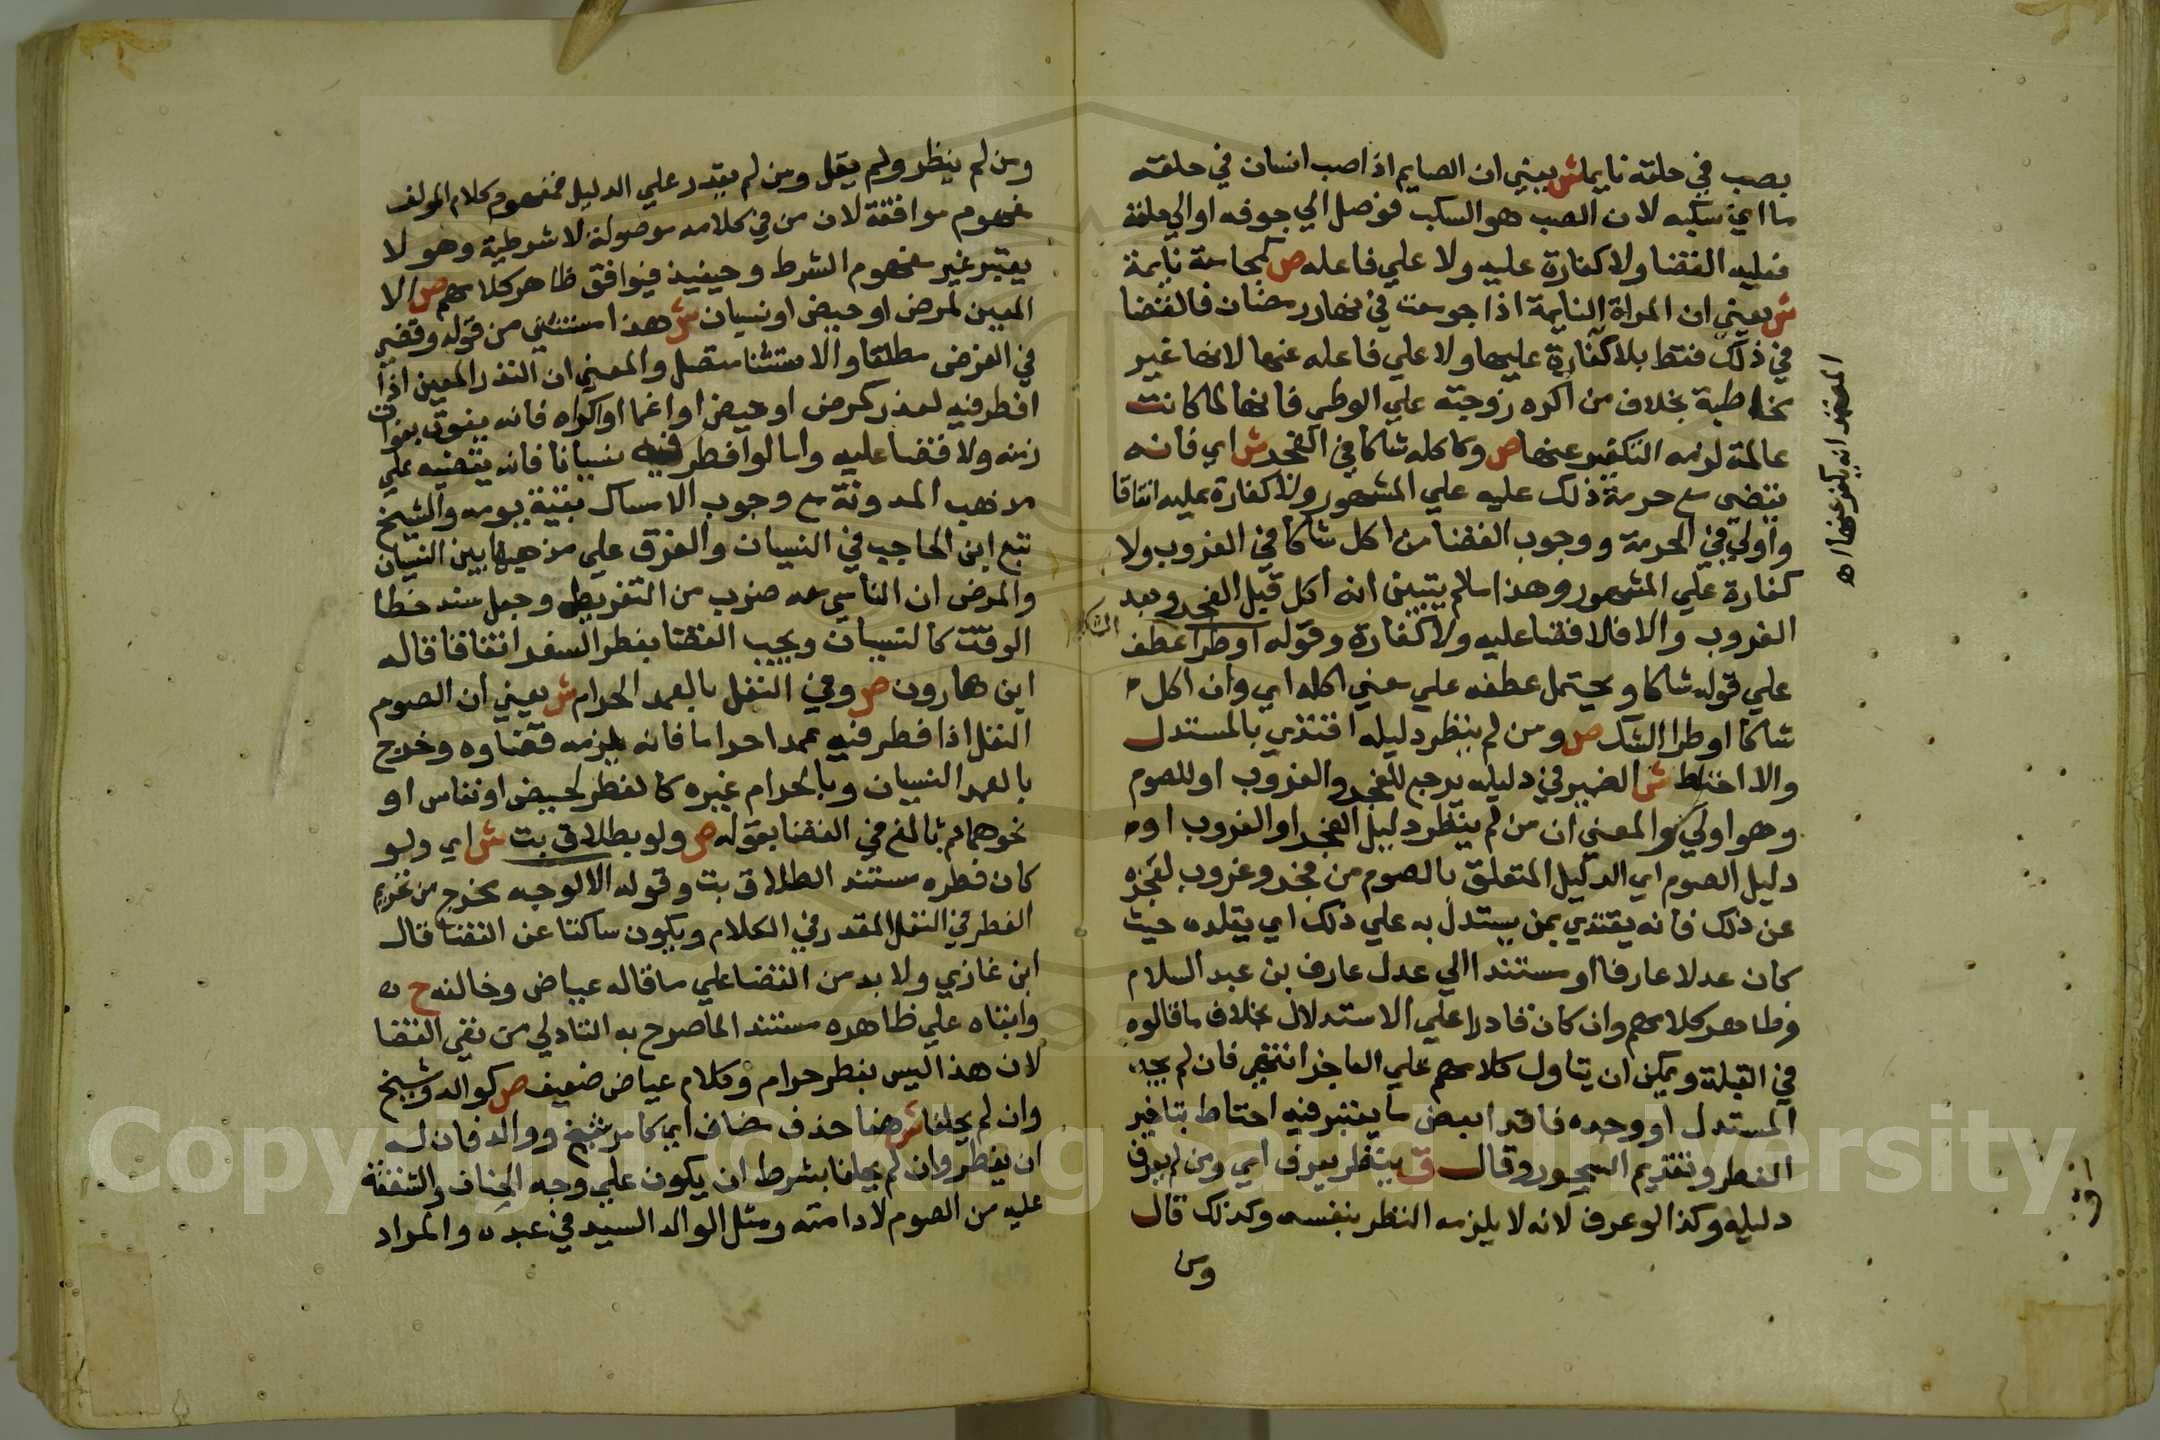 بصب في حلقه نايما ش يعني ان الصايم اذا صب انسان في حلقه
ما اي سكبه لان الصب هو السكب فوصل الي جوفه او الي حلقه
فعليه القضا ولا كفارة عليه ولا علي فاعله ص كمجامعة نايمة
ش يعني ان المراة النايمة اذا جومعت في نهار رمضان فالقضا
في ذلك فقط بلا كفارة عليها ولا علي فاعله عنها لانها غير
مخاطبة بخلاف من اكره زوجته علي الوطي فانها لما كانت
عالمة لزمه التكفير عنها ص وكاكله شاكا في الفجر ش اي فانه
يقضي مع حرمة ذلك عليه علي المشهور ولا كفارة عليه اتفاقا
واولي في الحرمة ووجوب القضا من اكل شاكا في الغروب ولا
كفارة علي المشهور وهذا ما لم يتبين انه اكل قبل الفجر وبعد
الغروب والا فلا قضا عليه ولا كفارة وقوله او طرا عطف
الشك
علي قوله شاكا ويحتمل عطفه علي معني اكله اي وان اكل
شاكا او طرا الشك ص ومن لم ينظر دليله اقتدي بالمستدل
والا احتاط ش الضمير في دليله يرجع للفجر والغروب او للصوم
وهو اولي والمعني ان من لم ينظر دليل الفجر او الغروب او
دليل الصوم اي الدليل المتعلق بالصوم من فجر وغروب لعجزه
عن ذلك فانه يقتدي بمن يستدل به علي ذلك اي يقلده حيث
كان عدلا عارفا او مستندا الي عدل عارف بن عبد السلام
وظاهر كلامهم وان كان قادرا علي الاستدلال بخلاف ما قالوه
في القبلة ويمكن ان يتاول كلامهم علي العاجز انتهي فان لم يجد
المستدل او وجده فاقدا بعض ما يعتبر فيه احتاط بتاخير
الفطر وتقديم السحور وقال ق ينظر يعرف اي ومن لم يعرف
دليله وكذا لو عرف لانه لا يلزمه النظر بنفسه وكذلك قال
ومن
المعتمد انه يكفر عنها اه
ومن لم ينظر ولم يقل ومن لم يقدر علي الدليل فمفهوم كلام المولف
مفهوم موافقة لان من في كلامه موصولة لا شرطية وهو لا
يعتبر غير مفهوم الشرط وحينيذ فيوافق ظاهر كلامهم ص الا
المعين لمرض او حيض او نسيان ش هذا مستثني من قوله وقضي
في الفرض مطلقا والاستثنا متصل والمعني ان النذر المعين اذا
افطر فيه لعذر كمرض او حيض او اغما او اكراه فانه يفوت بفوات
زمنه ولا قضا عليه واما لو افطر فيه نسيانا فانه يقضيه علي
مذهب المدونة مع وجوب الامساك بقية يومه والشيخ
تبع ابن الحاجب في النسيان والفرق علي مذهبها بين النسيان
والمرض ان الناسي معه ضرب من التفريط وجعل سند خطا
الوقت كالنسيان ويجب القضا بفطر السفر اتفاقا قاله
ابن هارون ص وفي النفل بالعمد الحرام ش يعني ان الصوم
النفل اذا فطر فيه عمدا حراما فانه يلزمه قضاوه وخرج
بالعمد النسيان وبالحرام غيره كالفطر لحيض او نفاس او
نحوهما ثم بالغ في القضا بقوله ص ولو بطلاق بت ش اي ولو
كان فطره مستند الطلاق بت وقوله الا لوجه مخرج من تحريم
الفطر في النفل المقدر في الكلام ويكون ساكتا عن القضا قال
ابن غازي ولا بد من القضا علي ما قاله عياض وخالفه ح
وابقاه علي ظاهره مستندا لما صرح به التادلي من نفي القضا
لان هذا ليس بفطر حرام وكلام عياض ضعيف ص كوالد وشيخ
وان لم يحلفا ش هنا حذف مضاف اي كامر شيخ ووالد فان له
ان يفطر وان لم يحلفا بشرط ان يكون علي وجه الحنان والشفقة
عليه من الصوم لادامته ومثل الوالد السيد في عبده والمراد
Copyright © King Saud University